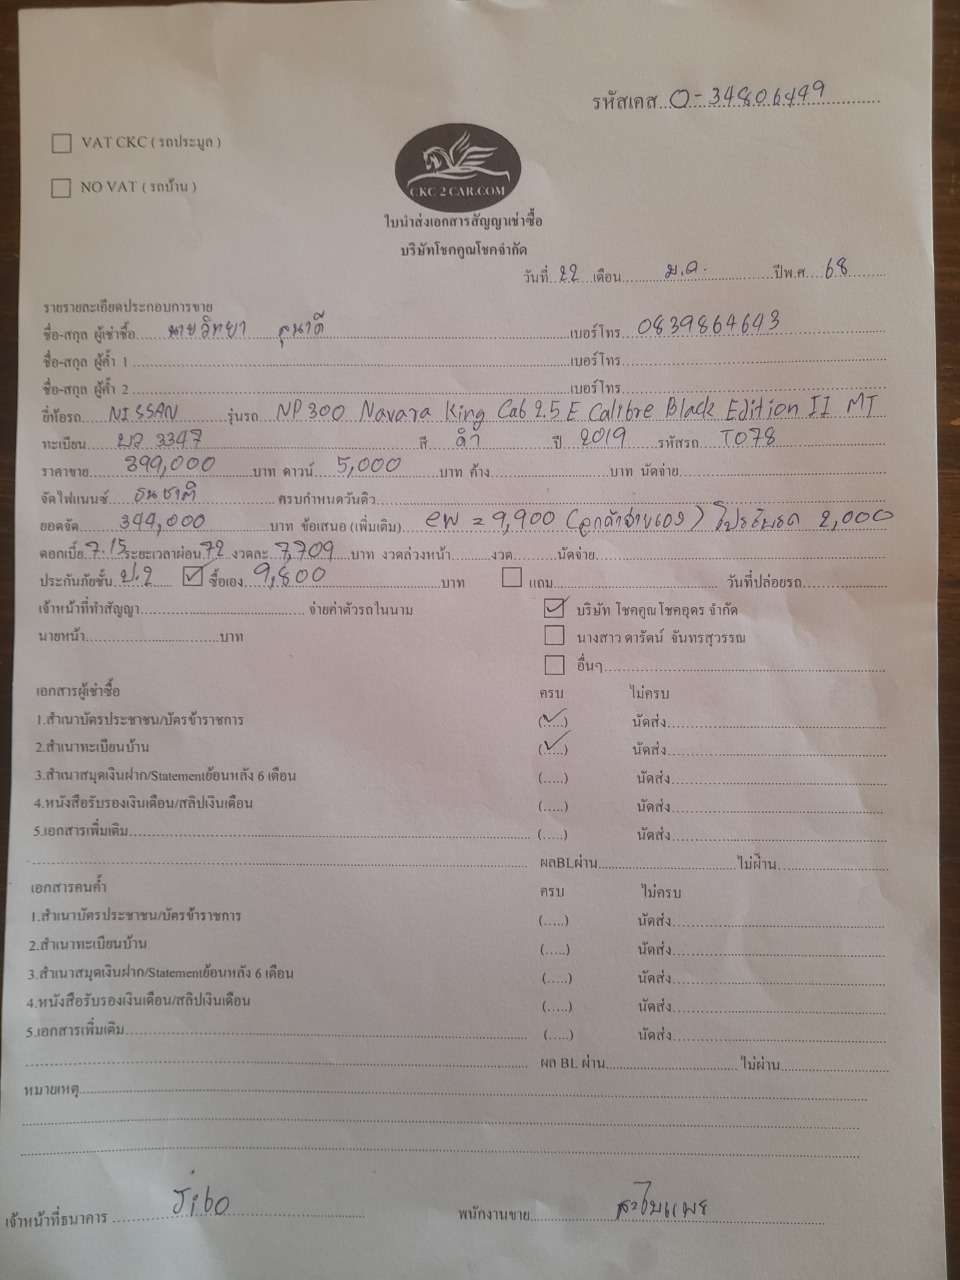 รหัสเคส O-34806499
VAT CKC ( รถประมูล )
NO VAT ( รถบ้าน )
CKC 2 CAR.COM
ใบนำส่งเอกสารสัญญาเช่าซื้อ
บริษัทโชคคูณโชคจำกัด
วันที่ 22 เดือน ม.ค. ปีพ.ศ. 68
รายรายละเอียดประกอบการขาย
ชื่อ-สกุล ผู้เช่าซื้อ นายวิทยา สุนาดี เบอร์โทร 0839864643
ชื่อ-สกุล ผู้ค้ำ 1 เบอร์โทร
ชื่อ-สกุล ผู้ค้ำ 2 เบอร์โทร
ยี่ห้อรถ NISSAN รุ่นรถ NP300 Navara King Cab 2.5 E Calibre Black Edition II MT
ทะเบียน 3347 สี ดำ ปี 2019 รหัสรถ T078
ราคาขาย 399,000 บาท ดาวน์ 5,000 บาท ค้าง บาท นัดจ่าย
จัดไฟแนนซ์ ธนชาติ ครบกำหนดวันดิว
ยอดจัด 394,000 บาท ข้อเสนอ (เพิ่มเติม) ew = 9,900 (ลูกค้าจ่ายเอง) 2,000
ดอกเบี้ย 7.15 ระยะเวลาผ่อน 72 งวดละ 7,709 บาท งวดล่วงหน้า งวด นัดจ่าย
ประกันภัยชั้น ป.2 ซื้อเอง 9,800 บาท แถม วันที่ปล่อยรถ
เจ้าหน้าที่ทำสัญญา จ่ายค่าตัวรถในนาม บริษัท โชคคูณโชคอุดร จำกัด
นายหน้า บาท นางสาว ดารัตน์ จันทรสุวรรณ
อื่นๆ
เอกสารผู้เช่าซื้อ ครบ ไม่ครบ
1.สำเนาบัตรประชาชน/บัตรข้าราชการ (.....) นัดส่ง
2.สำเนาทะเบียนบ้าน (.....) นัดส่ง
3.สำเนาสมุดเงินฝาก/Statementย้อนหลัง 6 เดือน (.....) นัดส่ง
4.หนังสือรับรองเงินเดือน/สลิปเงินเดือน (.....) นัดส่ง
5.เอกสารเพิ่มเติม (.....) นัดส่ง
ผลBLผ่าน ไม่ผ่าน
เอกสารคนค้ำ ครบ ไม่ครบ
1.สำเนาบัตรประชาชน/บัตรข้าราชการ (.....) นัดส่ง
2.สำเนาทะเบียนบ้าน (.....) นัดส่ง
3.สำเนาสมุดเงินฝาก/Statementย้อนหลัง 6 เดือน (.....) นัดส่ง
4.หนังสือรับรองเงินเดือน/สลิปเงินเดือน (.....) นัดส่ง
5.เอกสารเพิ่มเติม (.....) นัดส่ง
ผล BL ผ่าน ไม่ผ่าน
หมายเหตุ
เจ้าหน้าที่ธนาคาร Jibo พนักงานขาย